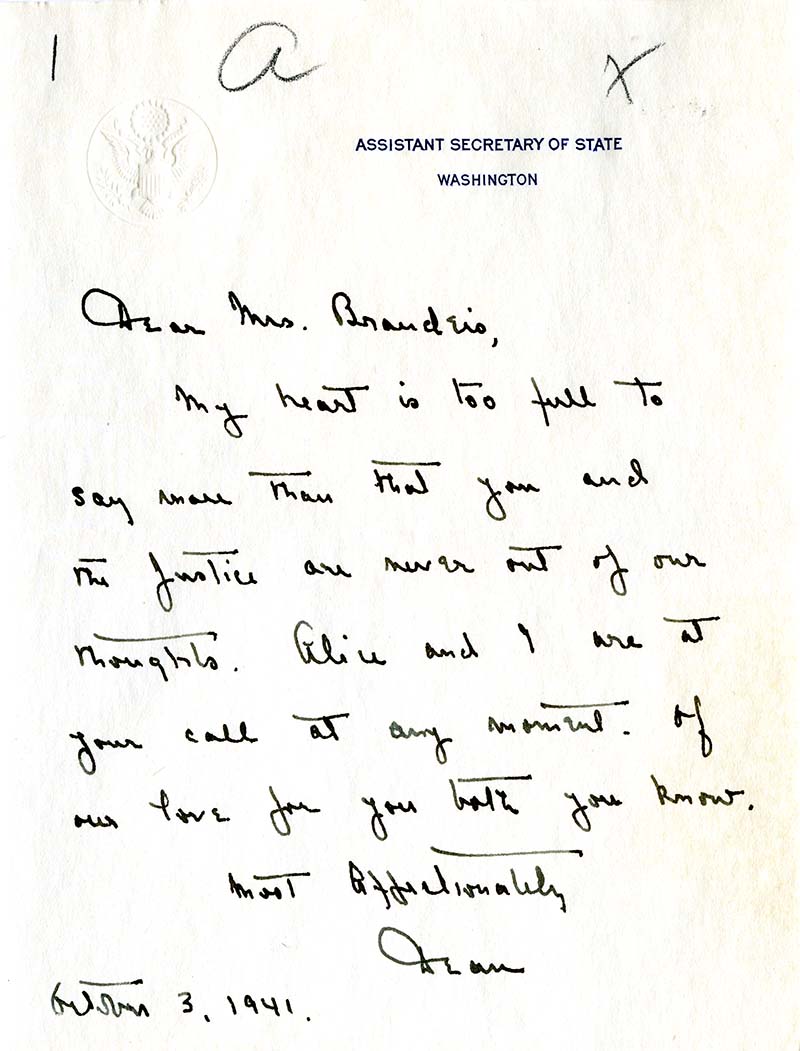 1 a x
ASSISTANT SECRETARY OF STATE
WASHINGTON
Dear Mrs. Brandeis,
My heart is too full to
say more than that you and
the Justice are never out of our
thoughts. Alice and I are at
your call at any moment. Of
our love for you both you know.
Most Affectionately
Dean
October 3, 1941.